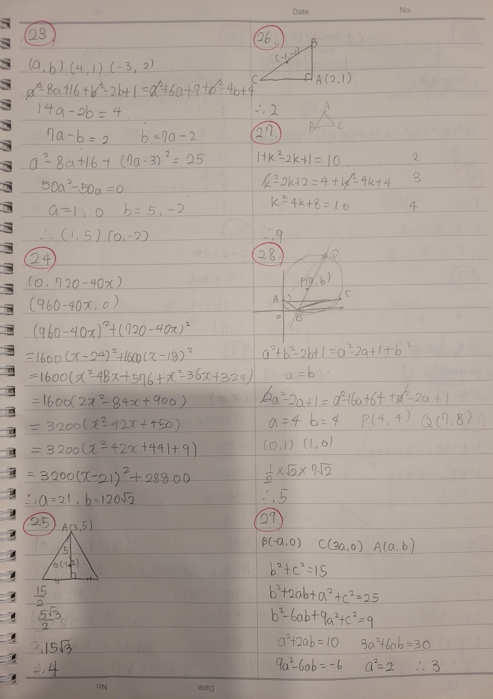 Date.
No.
23
(a,b) (4,1) (-3,2)
a²-8a+16+b²-2b+1=a²+6a+9+b²-4b+4
14a-2b=4
7a-b=2   b=7a-2
a²-8a+16+(7a-3)²=25
50a²-50a=0
a=1, 0   b=5, -2
∴ (1,5) (0,-2)
24
(0, 720-40x)
(960-40x, 0)
(960-40x)²+(720-40x)²
=1600(x-24)²+1600(x-18)²
=1600(x²-48x+576+x²-36x+324)
=1600(2x²-84x+900)
=3200(x²-42x+450)
=3200(x²-42x+441+9)
=3200(x-21)²+28800
∴ a=21, b=120√2
25
A(3,5)
5
15/2
5√3/2
15√3
∴ 4
26.
B
C
A(2,1)
∴ 2
A
B C
27.
1+k²-2k+1=10   2
k²-2k+2=4+k²-4k+4   3
k²-4k+8=10   4
∴ 9
28.
Q
P(a,b)
A
C
O
B
a²+b²-2b+1=a²-2a+1+b²
a=b
2a²-2a+1=a²-16a+64+a²-2a+1
a=4 b=4   P(4,4)   Q(7,8)
(0,1) (1,0)
1/2×√2×7√2
∴ 5
29
B(-a,0)   C(3a,0)   A(a,b)
b²+c²=15
b²+2ab+a²+c²=25
b²-6ab+9a²+c²=9
a²+2ab=10   3a²+6ab=30
9a²-6ab=-6   a²=2   ∴ 3
No
Date